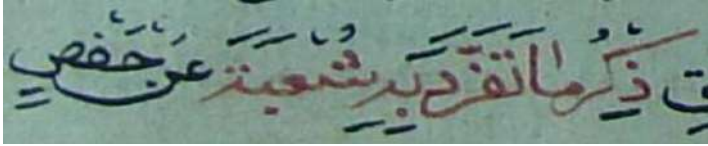 ذِكْرُ مَا تَفَرَّدَ بِهِ شُعْبَةُ عَنْ حَفْصٍ